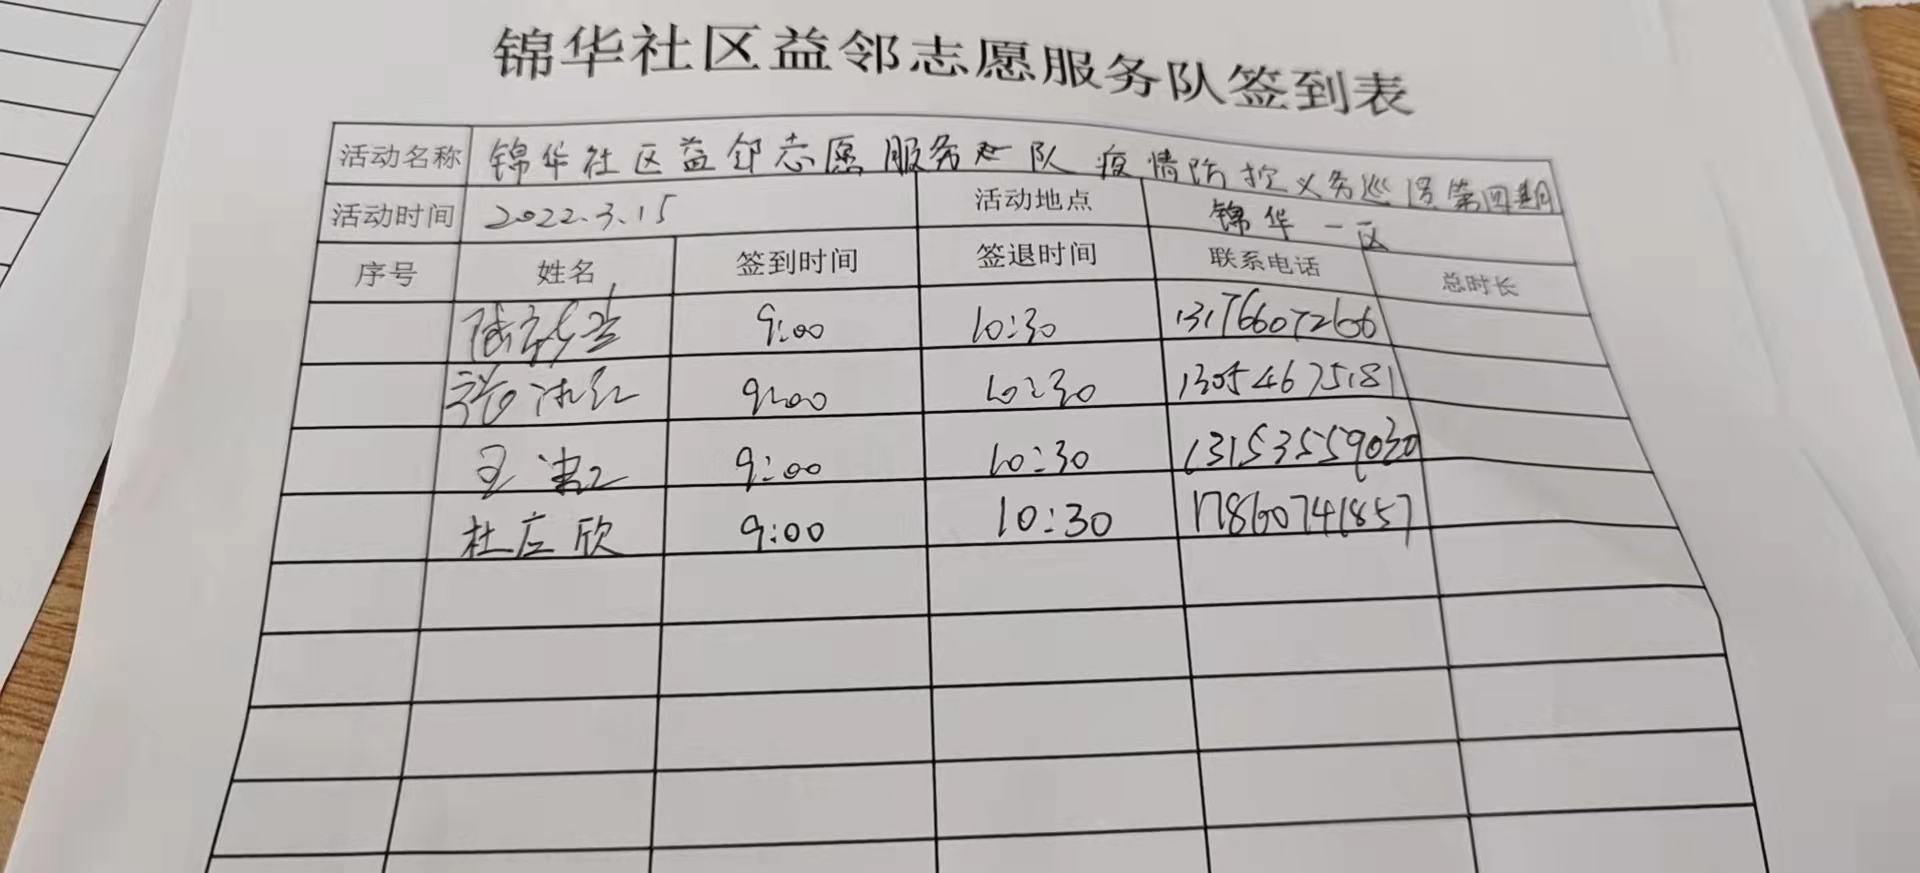 锦华社区益邻志愿服务队签到表
活动名称 锦华社区益邻志愿服务队疫情防控义务巡逻第四期
活动时间 2022.3.15 活动地点 锦华一区
序号 姓名 签到时间 签退时间 联系电话 总时长
9:00 10:30 13176607266
9:00 10:30 13054675181
王 9:00 10:30 13153559030
杜 欣 9:00 10:30 17860741857